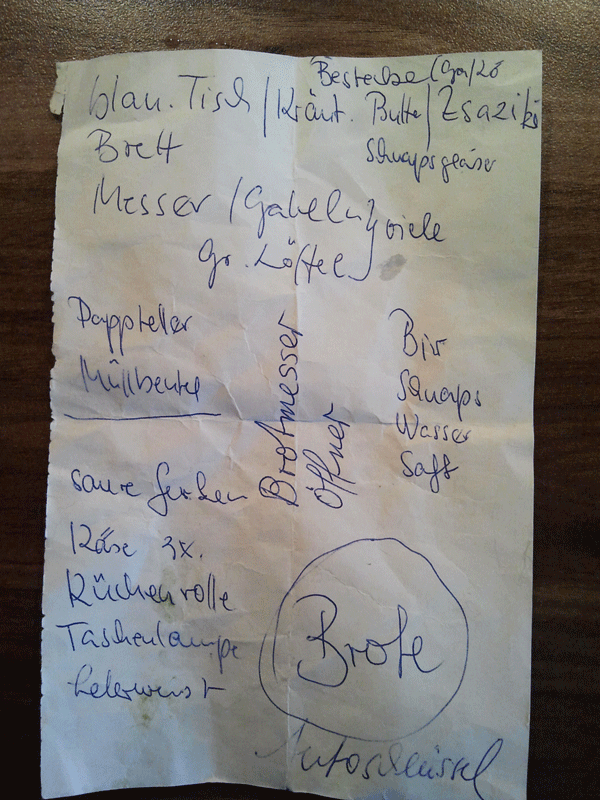 Bestecke/Ga/Lö
blau. Tisch/Kräut. Butter/Zsaziki
Brett
Schnapsgläser
Messer/Gabeln } viele
Gr. Löffel
Pappteller
Müllbeutel
Brotmesser
Öffner
Bier
Schnaps
Wasser
Saft
saure Gurken
Käse 3x.
Küchenrolle
Taschenlampe
Leberwurst
Brote
Autoschlüssel